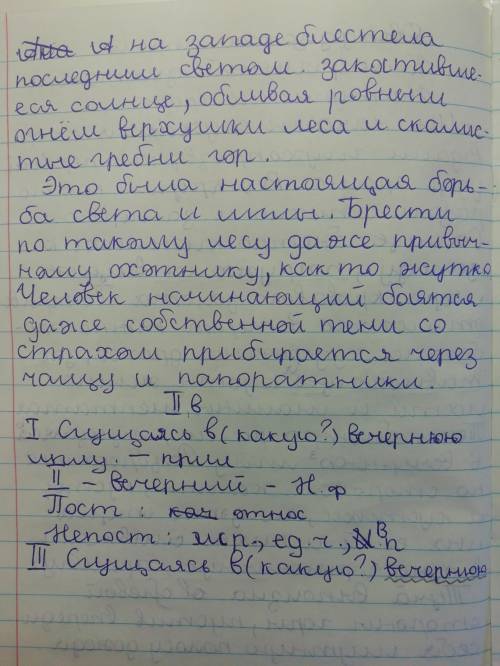 А на западе блестела
последним светом закотивше-
еся солнце, обливая ровным
огнём верхушки леса и скалис-
тые гребни гор.
Это была настоящая борь-
ба света и мглы. Брести
по такому лесу даже привыч-
ному охотнику, как то жутко
Человек начинающий боятся
даже собственной тени со
страхом прибирается через
чащу и папоратники.
II в
I Сгущаясь в (какую?) вечернюю
мглу. – прил
II – вечерний – Н.ф
Пост : относ
Непост : м.р., ед.ч., В.п
III Сгущаясь в (какую?) вечернюю